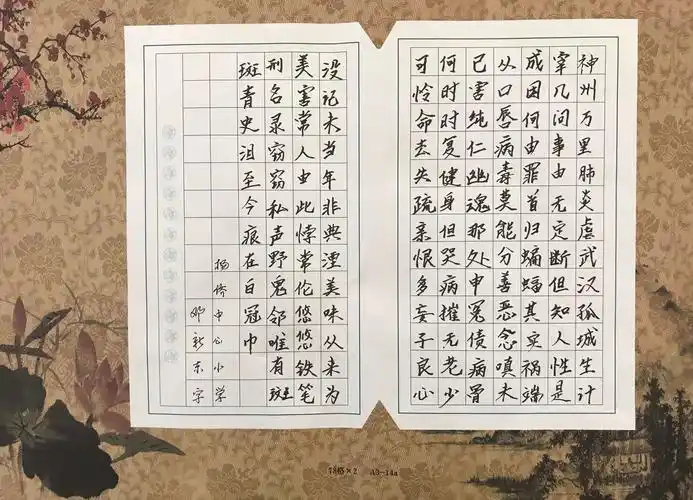 神州万里肺炎虐武汉孤城生计
宰几问事由无定断但知人性是
成因何由罪首归蝙蝠其实祸端
从口唇病毒莫能分善恶念嗔未
已害纯仁幽魂那处申冤债病骨
何时时复健身但哭病摧无老少
可怜命去失疏亲恨多妄子良心
没记木当年非典湮美味从来为
美害常人由此悖常伦悠悠铁笔
刑名录窃窃私声野鬼邻唯有斑
斑青史泪至今痕在白冠巾
杨侨中心小学
邓新东字
78格×2 A3-14a